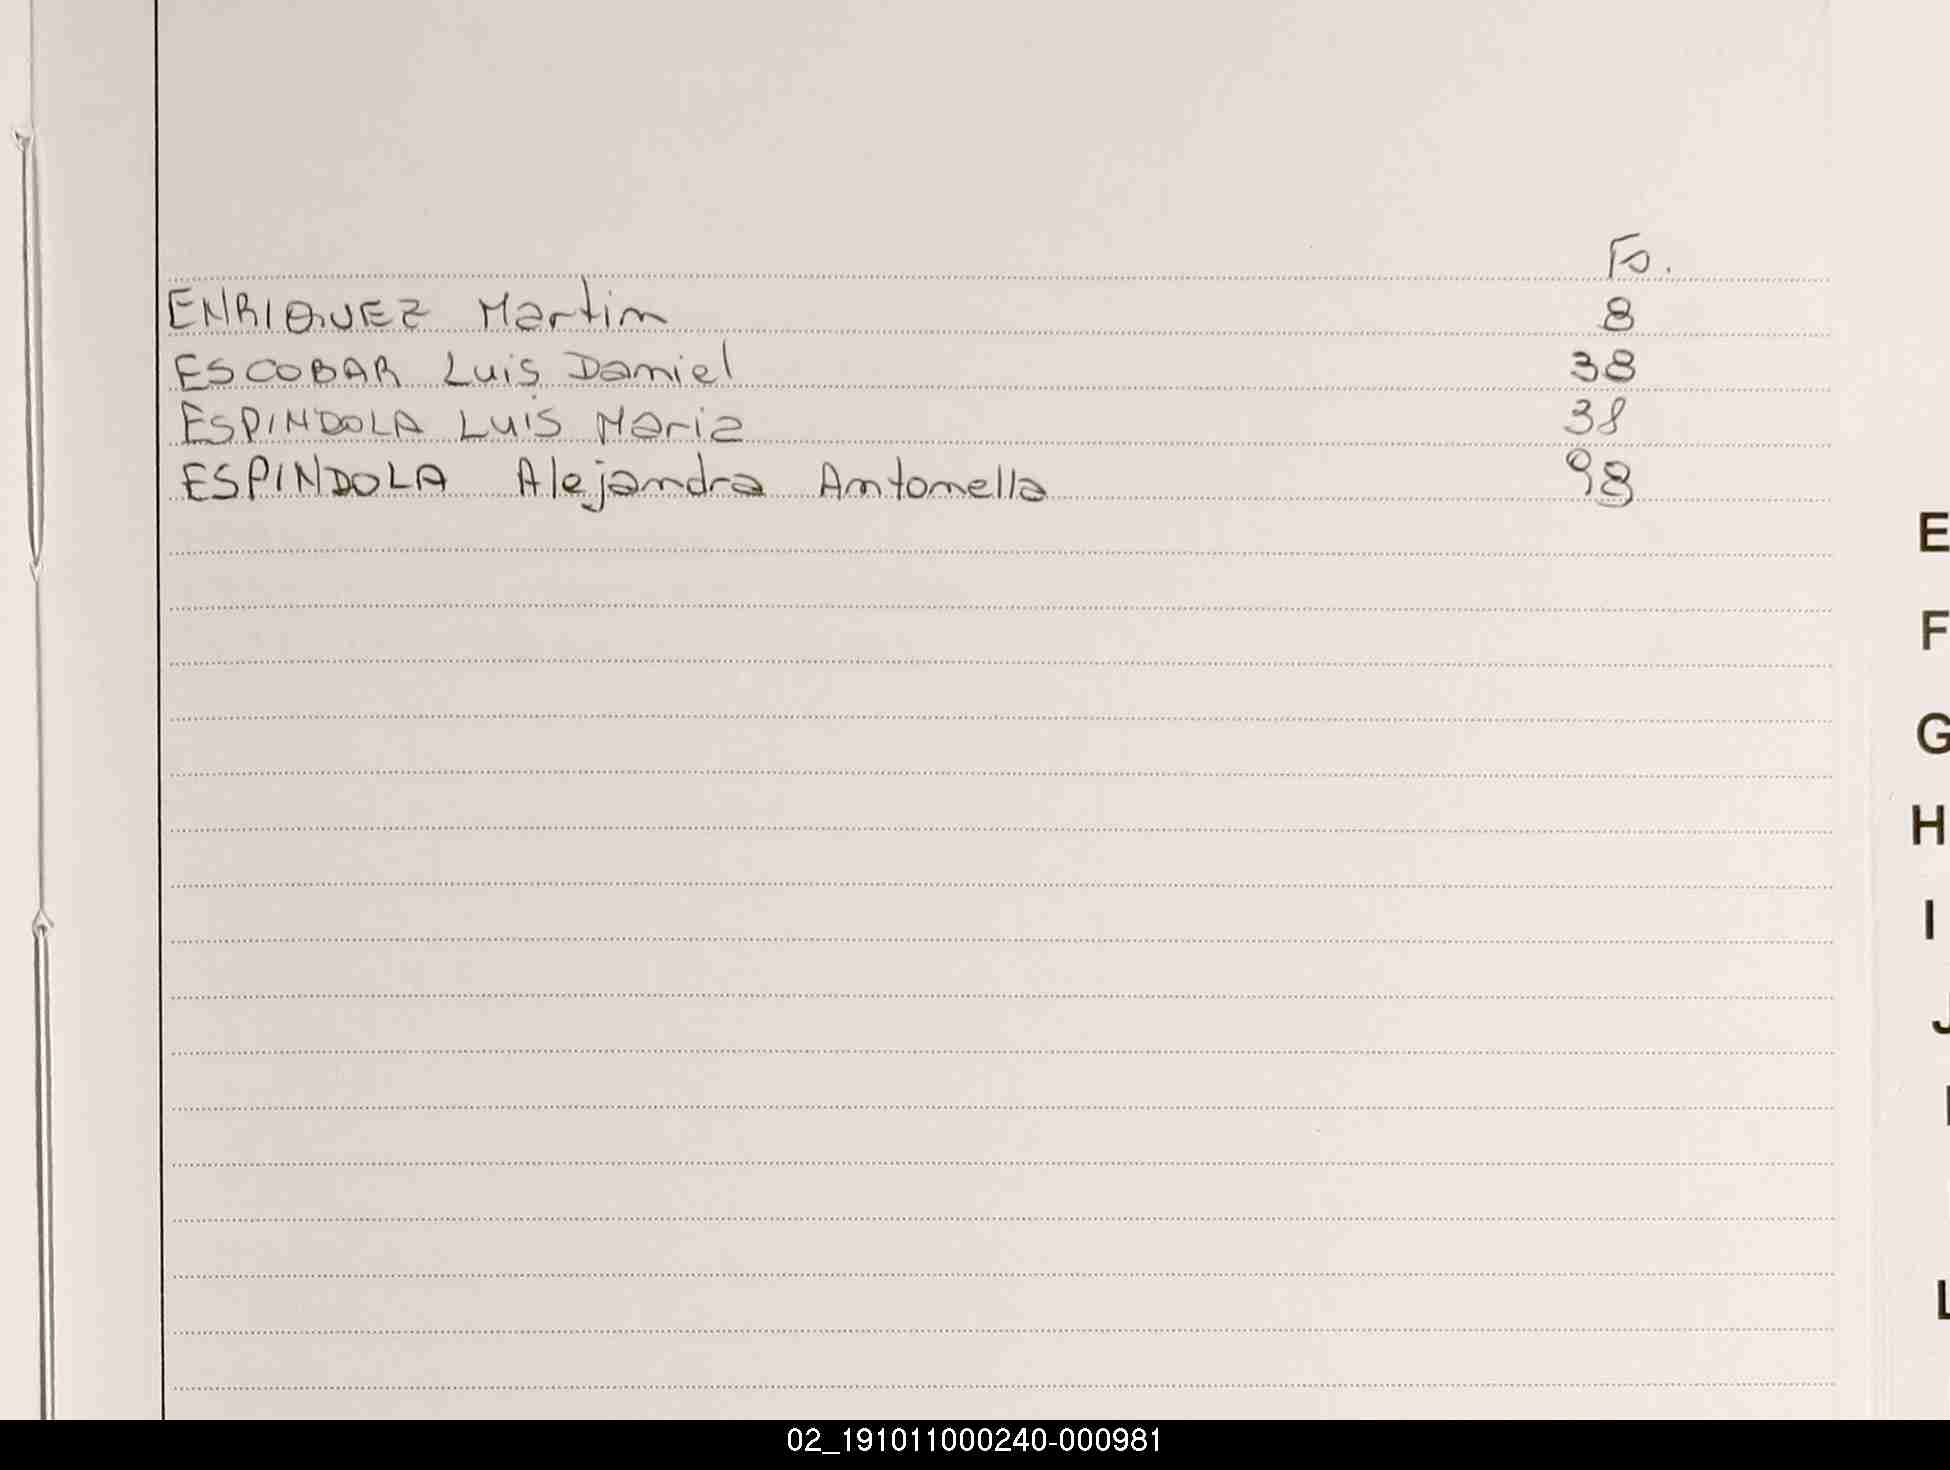 Fo.
ENRIQUEZ Martin 8
ESCOBAR Luis Daniel 38
ESPINDOLA Luis Maria 38
ESPINDOLA Alejandra Antonella 98
E
F
G
H
I
J
L
02_191011000240-000981